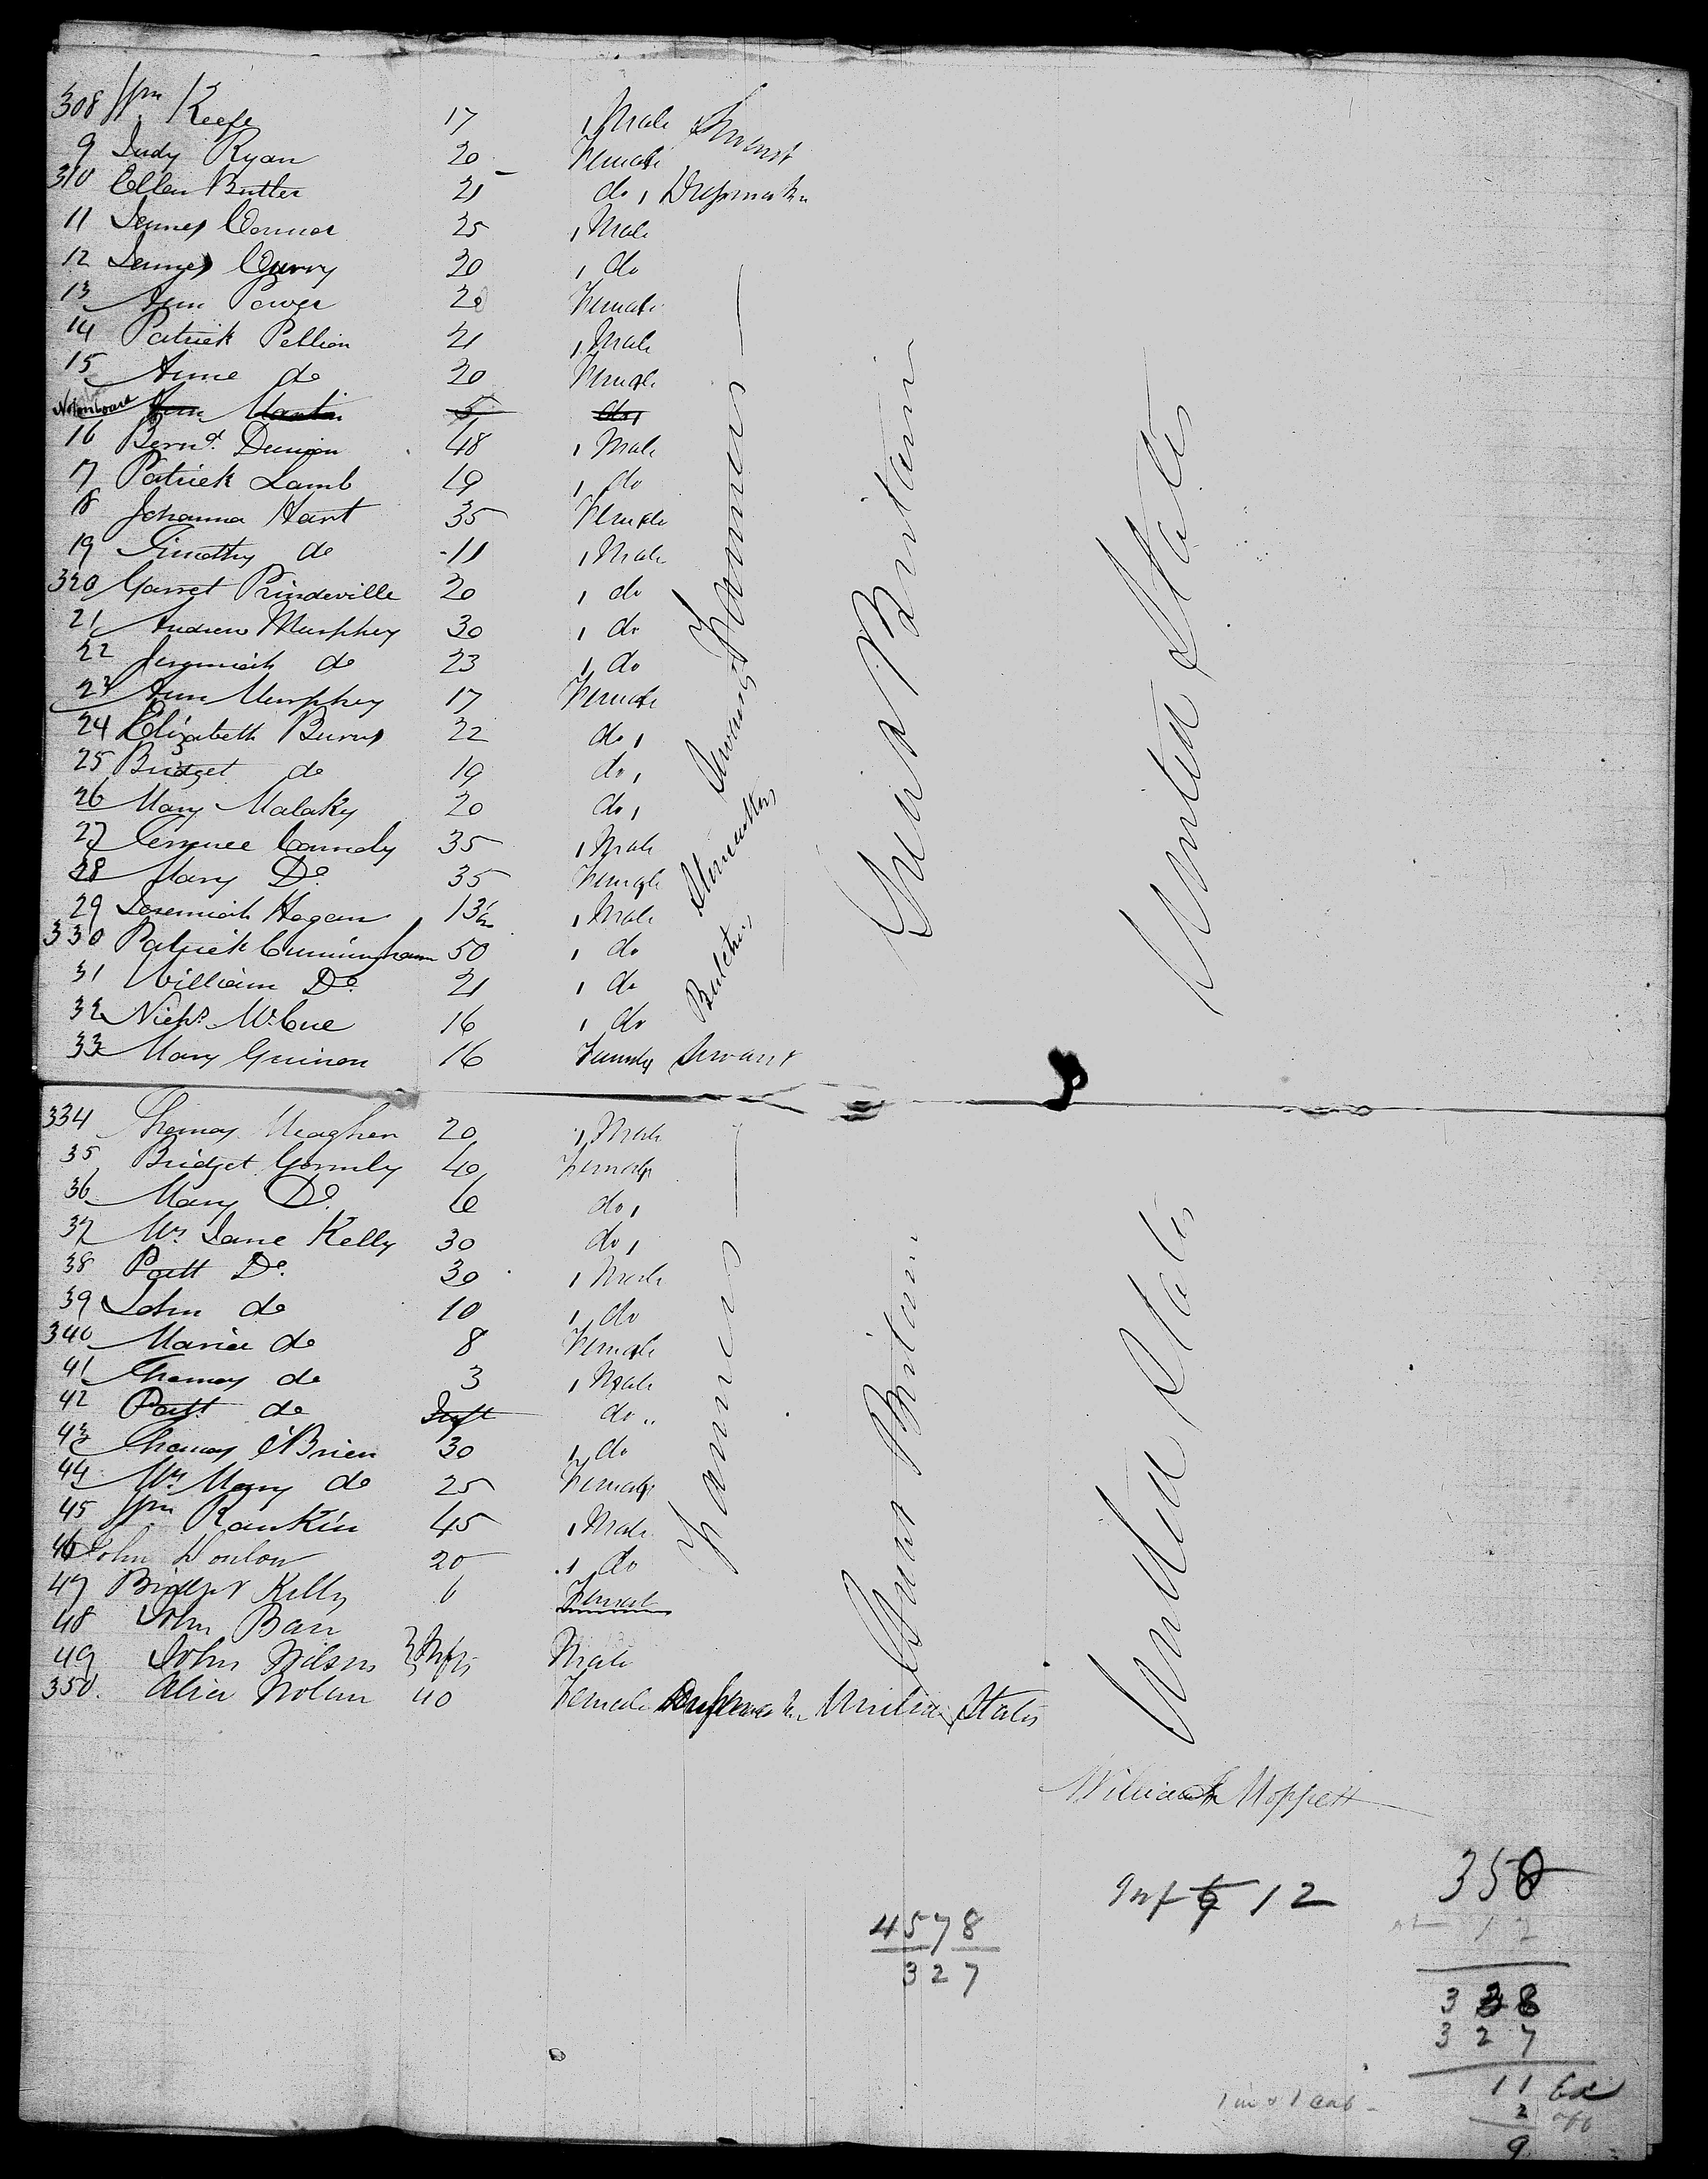 308 Wm Keefe 17 , Male Servant
9 Judy Ryan 20 Female
310 Ellen Butler 21 do , Dressmaker
11 James Connor 25 , Male
12 James Curry 20 , do
13 Ann Power 20 Female
14 Patrick Pellion 21 , Male
15 Anne do 20 Female
Not on board Ann Martin 5 do,
16 Bernd. Dunion 48 , Male
17 Patrick Lamb 19 , do
18 Johanna Hart 35 Female
19 Timothy do 11 , Male
320 Garret Prindeville 20 , do
21 Andrew Murphey 30 , do
22 Jeremiah do 23 , do
23 Ann Murphey 17 Female
24 Elizabeth Burns 22 do ,
25 Bridget do 19 do ,
26 Mary Malaky 20 do ,
27 Terrence Connoly 35 , Male
28 Mary Do. 35 Female
29 Jeremiah Hogan 13 , Male
330 Patrick Cunningham 50 , do
31 William Do. 21 , do
32 Nichs. McCue 16 , do
33 Mary Guinon 16 Female Servant
Farmers
Servants
Butcher
Great Britain
United States
334 Thomas Meaghen 20 , Male
35 Bridget Gormly 40 Female
36 Mary Do. 6 do ,
37 Mrs Jane Kelly 30 do ,
38 Patt Do. 30 , Male
39 John do 10 , do
340 Maria do 8 Female
41 Thomas do 3 , Male
42 Patt do Inft do "
43 Thomas O'Brien 30 , do
44 Mrs Mary do 25 Female
45 Wm Rankin 45 , Male
46 John Donlon 20 , do
47 Bridget Kelly 6 Female
48 John Barr
49 John Wilson Infts Male
350. Alice Nolan 40 Female Dressmaker United States
Farmers
Great Britain
United States
William Moppett
Inf 12
350
12
4578
327
338
327
11
2
9